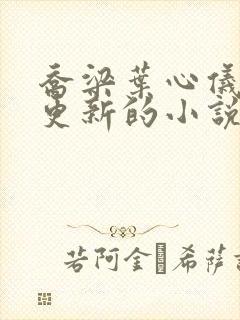 喬梁葉心儀
更新的小說
若阿金·希薩諾